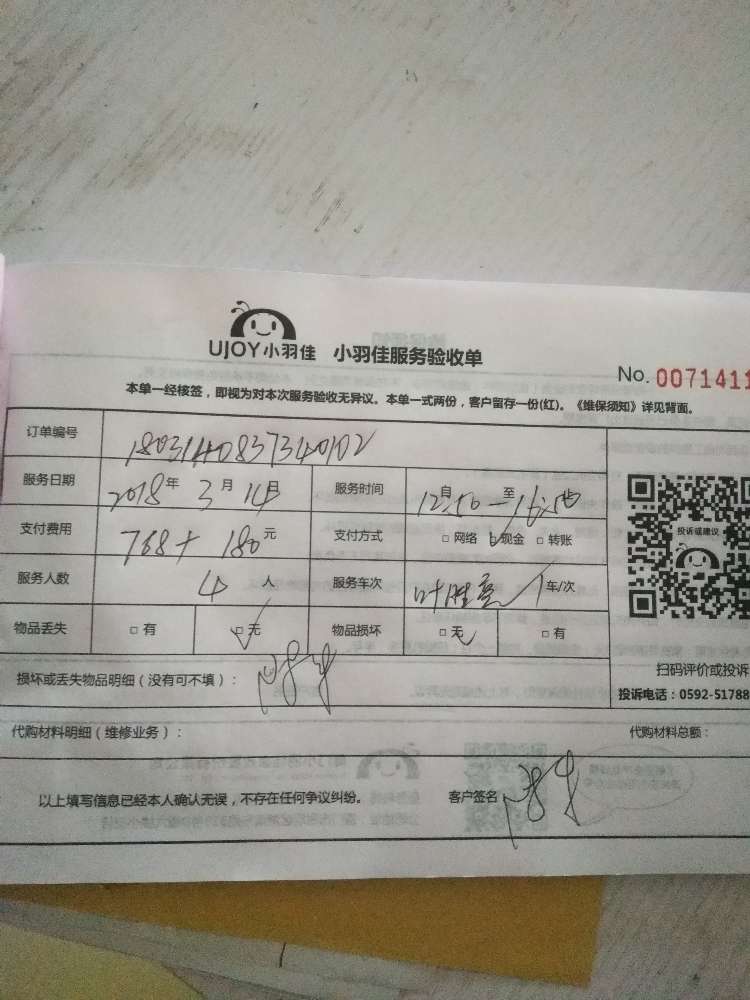 UJOY小羽佳 小羽佳服务验收单
No. 0071411
本单一经核签，即视为对本次服务验收无异议。本单一式两份，客户留存一份(红)。《维保须知》详见背面。
订单编号 1803140837340102
服务日期 2018年 3月 14日 服务时间 自12:50至16:50
支付费用 768+180元 支付方式 □ 网络 □ 现金 □ 转账
服务人数 4 人 服务车次 叶胜 1 车/次
物品丢失 □ 有 □ 无 物品损坏 □ 无 □ 有
投诉或建议
扫码评价或投诉
投诉电话：0592-51788
损坏或丢失物品明细（没有可不填）：
代购材料明细（维修业务）： 代购材料总额：
以上填写信息已经本人确认无误，不存在任何争议纠纷。 客户签名